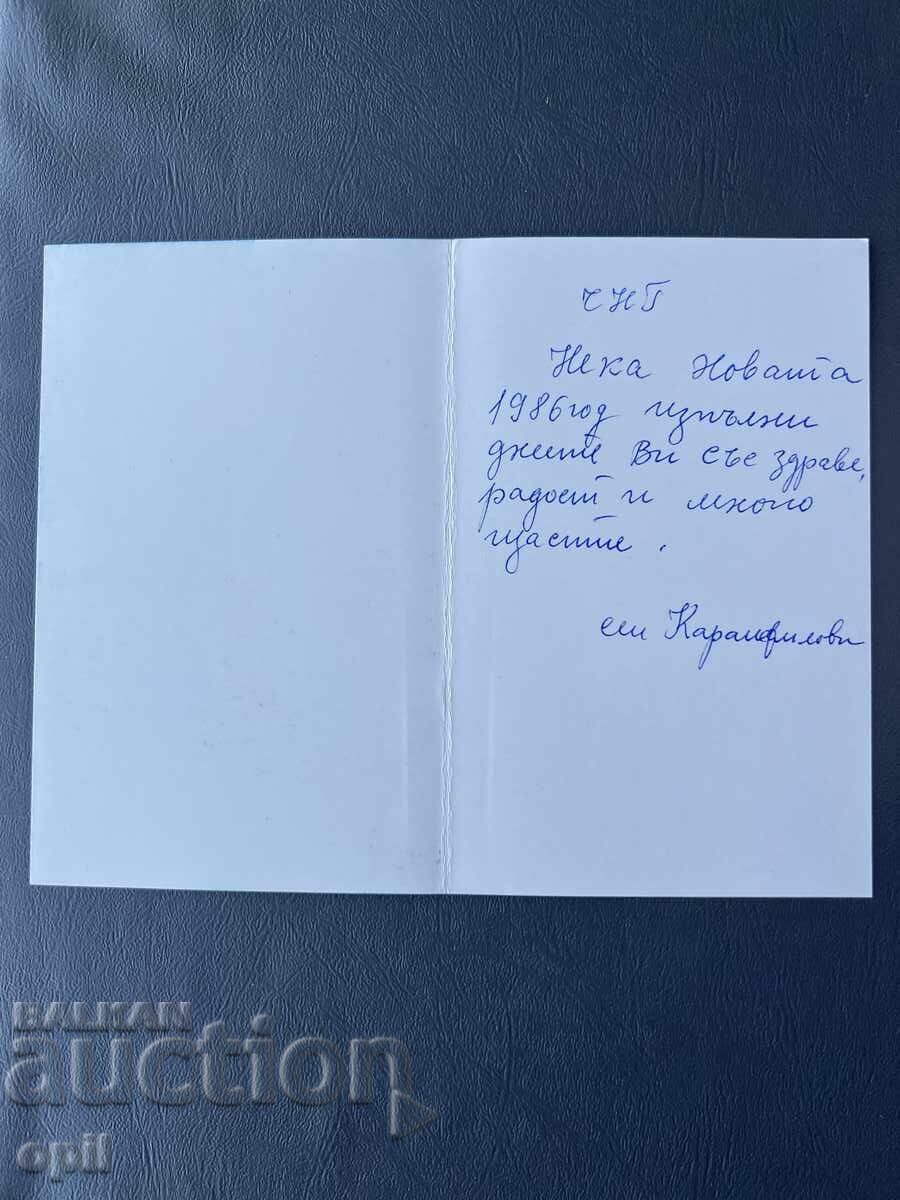 ЧНГ
Нека Новата
1986 год изпълни
дните Ви със здраве,
радост и много
щастие.
сем Карамфилови
BALKAN
auction
opil